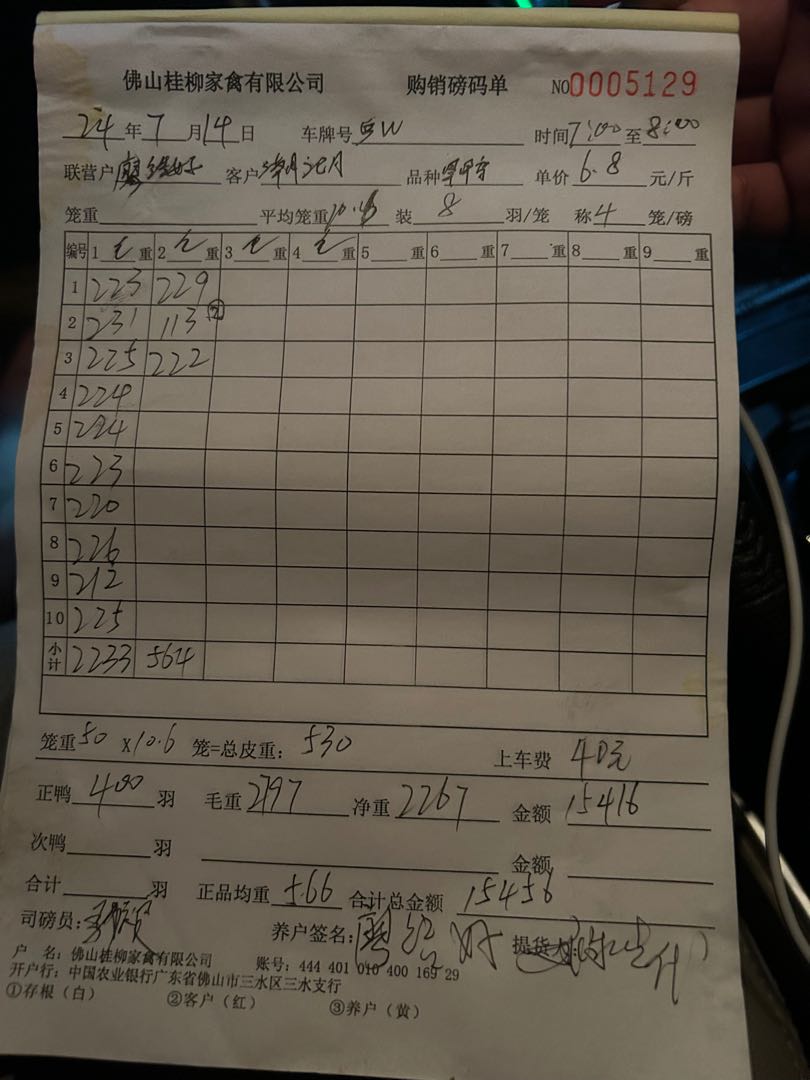 佛山桂柳家禽有限公司 购销磅码单 NO0005129
24年7月14日 车牌号 时间7:00至8:00
联营户廖 客户 品种 单价6.8元/斤
笼重 平均笼重10.6 装8羽/笼 称4笼/磅
编号 1毛重 2毛重 3毛重 4毛重 5重 6重 7重 8重 9重
1 223 229
2 231 113②
3 225 222
4 224
5 224
6 223
7 220
8 226
9 212
10 225
小计 2233 564
笼重50×10.6笼=总皮重:530 上车费40元
正鸭400羽 毛重2797 净重2267 金额15416
次鸭羽 金额
合计羽 正品均重5.66 合计总金额15456
司磅员: 养户签名:廖 提货人
户 名:佛山桂柳家禽有限公司 账号:444 401 010 400 169 29
开户行:中国农业银行广东省佛山市三水区三水支行
①存根(白) ②客户(红) ③养户(黄)